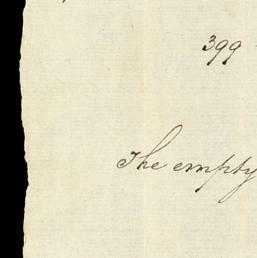 399
The empty